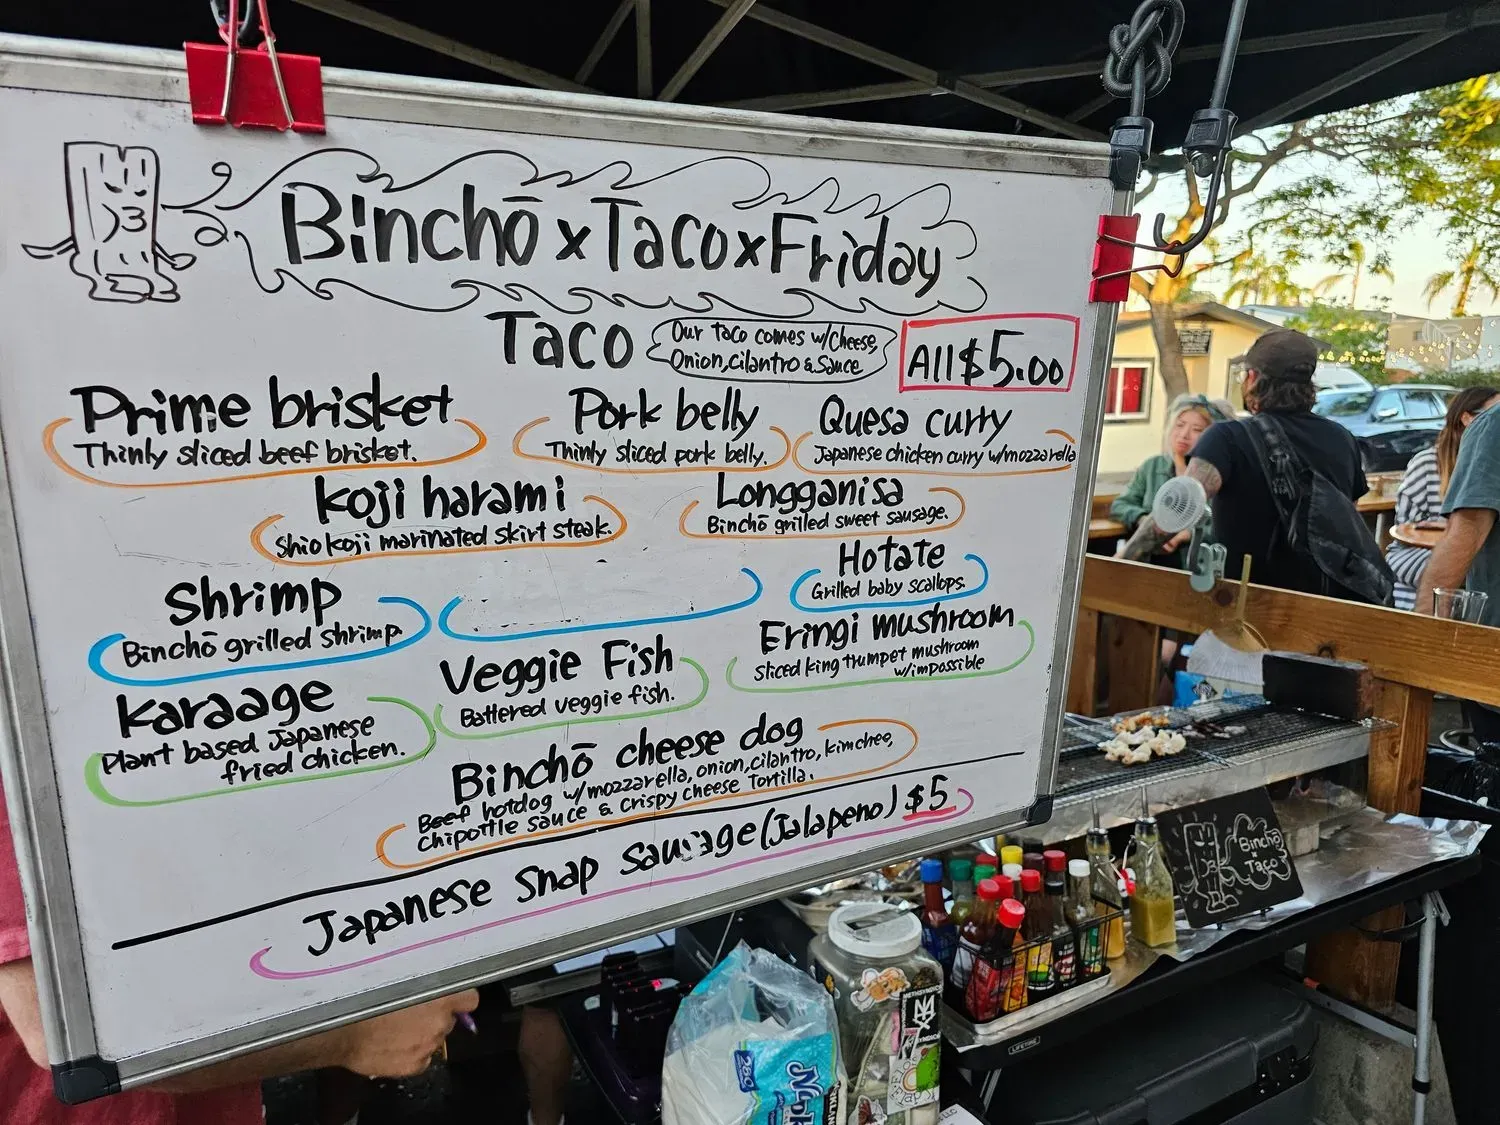 Binchō x Taco x Friday
Taco
Our taco comes w/cheese,
Onion, cilantro & Sauce
All $5.00
Prime brisket
Thinly sliced beef brisket.
Pork belly
Thinly sliced pork belly.
Quesa curry
Japanese chicken curry w/mozzarella
Koji harami
Shio koji marinated skirt steak.
Longganisa
Binchō grilled sweet sausage.
Shrimp
Binchō grilled shrimp.
Hotate
Grilled baby scallops.
Karaage
Plant based Japanese
fried chicken.
Veggie Fish
Battered veggie fish.
Eringi mushroom
Sliced king trumpet mushroom
w/impossible
Binchō cheese dog
Beef hotdog w/mozzarella, onion, cilantro, kimchee,
chipottle sauce & crispy cheese Tortilla.
Japanese snap sausage (Jalapeno) $5
Binchō
x
Taco
LIFETIME
280